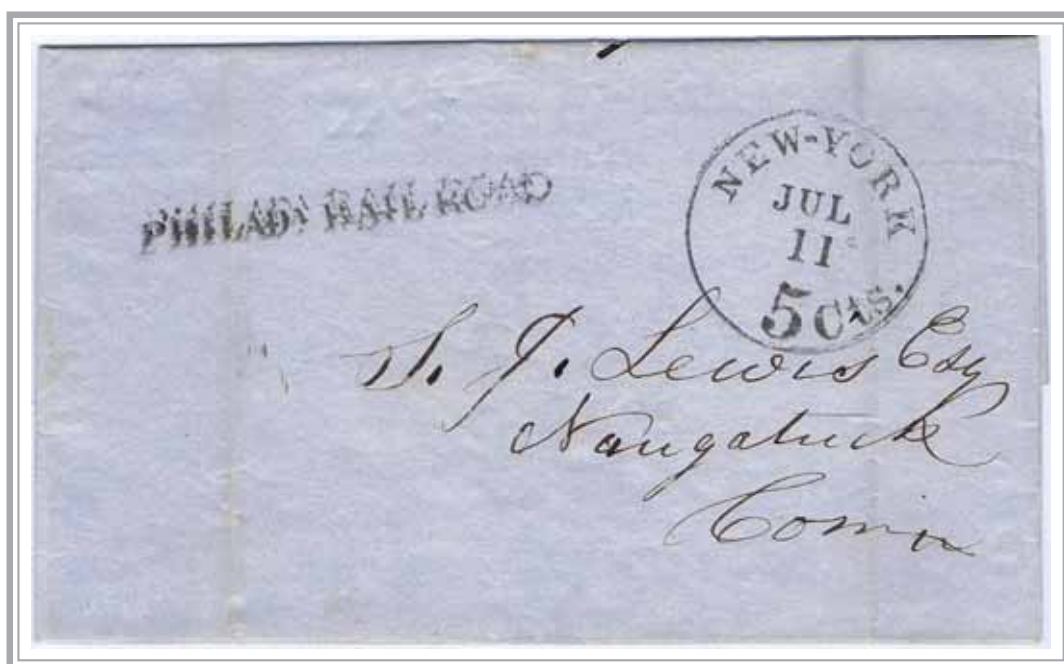 PHILADA RAIL ROAD
NEW-YORK
JUL
11
5 Cts.
S. J. Lewis Esq
Naugatuck
Conn